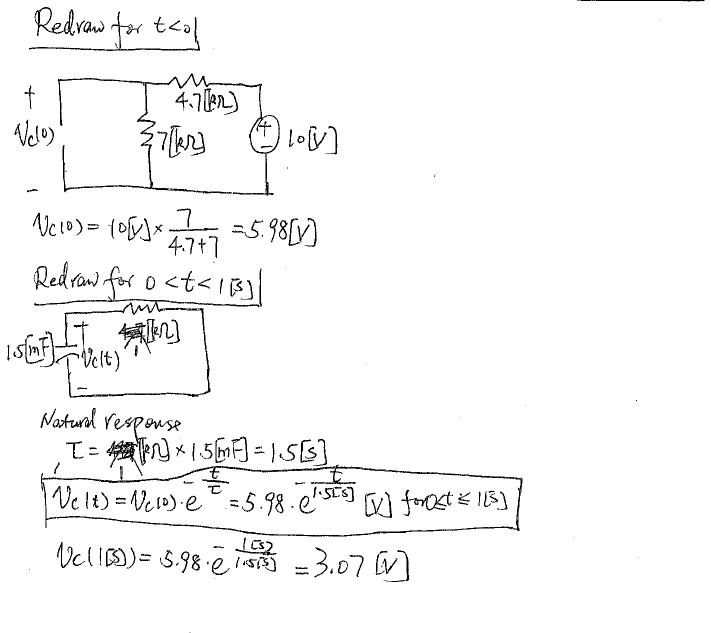 Redraw for t<0
4.7[kΩ]
+
Vc(0)
7[kΩ]
+
-
10[V]
-
Vc(0) = 10[V] × 7/(4.7+7) = 5.98[V]
Redraw for 0<t<1[s]
1[kΩ]
1.5[mF]
+
Vc(t)
-
Natural response
τ = 1[kΩ] × 1.5[mF] = 1.5[s]
Vc(t) = Vc(0)·e^(-t/τ) = 5.98·e^(-t/1.5[s]) [V] for 0≤t≤1[s]
Vc(1[s]) = 5.98·e^(-1[s]/1.5[s]) = 3.07 [V]